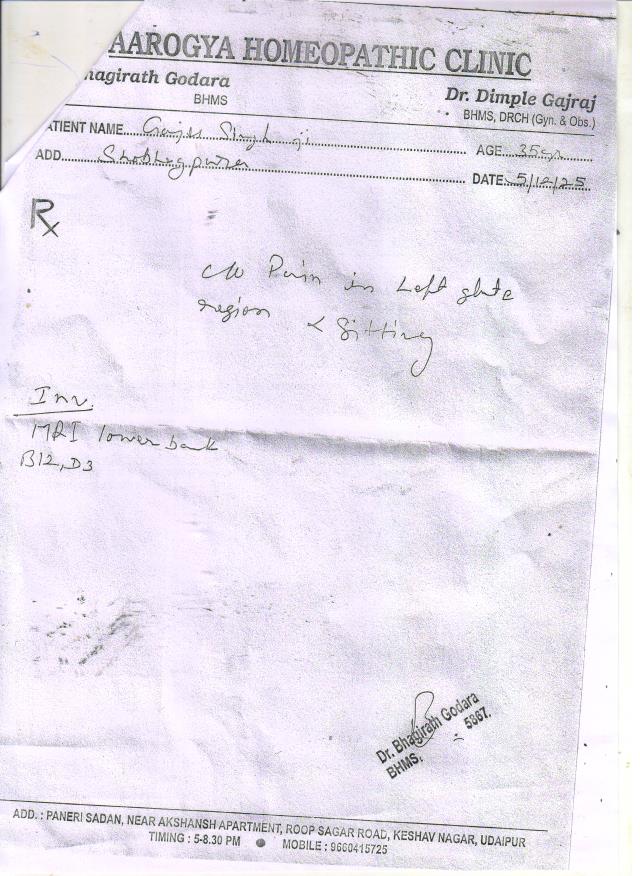 AAROGYA HOMEOPATHIC CLINIC
hagirath Godara
BHMS
Dr. Dimple Gajraj
BHMS, DRCH (Gyn. & Obs.)
ATIENT NAME Singh ji AGE 35yr
ADD. DATE 5/12/25
Rx
c/o Pain in Left glute
region < Sitting
Inv.
MRI lower back
B12, D3
Dr. Bhagirath Godara
BHMS, 5867.
ADD. : PANERI SADAN, NEAR AKSHANSH APARTMENT, ROOP SAGAR ROAD, KESHAV NAGAR, UDAIPUR
TIMING : 5-8.30 PM ● MOBILE : 9660415725